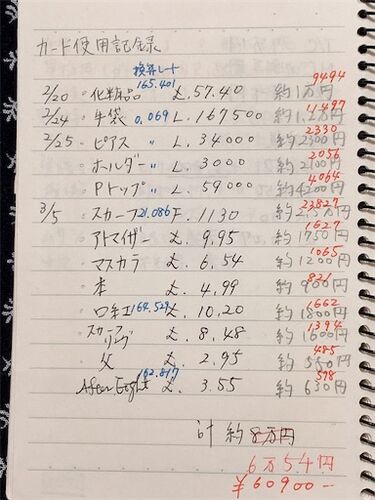 カード使用記録
換算レート
165.401 9494
2/20 ・化粧品 £.57.40 約1万円
11497
2/24 ・手袋 0.069 L.167500 約1.2万円
2330
2/25 ・ピアス 〃 L.34000 約2300円
2056
・ホルダー 〃 L.3000 約2100円
4064
・Pトップ 〃 L.59000 約4200円
23827
3/5 ・スカーフ 21.086 F.1130
1627
・アトマイザー £.9.95 約1750円
1065
・マスカラ £.6.54 約1200円
821
・本 £.4.99 約900円
1662
・口紅 £.10.20 約1800円
1394
・スカーフリング £.8.48 約1600円
485
・父 £.2.95 約550円
162.817 578
After Eight £.3.55 約630円
計 約8万円
6万54円
¥60900―